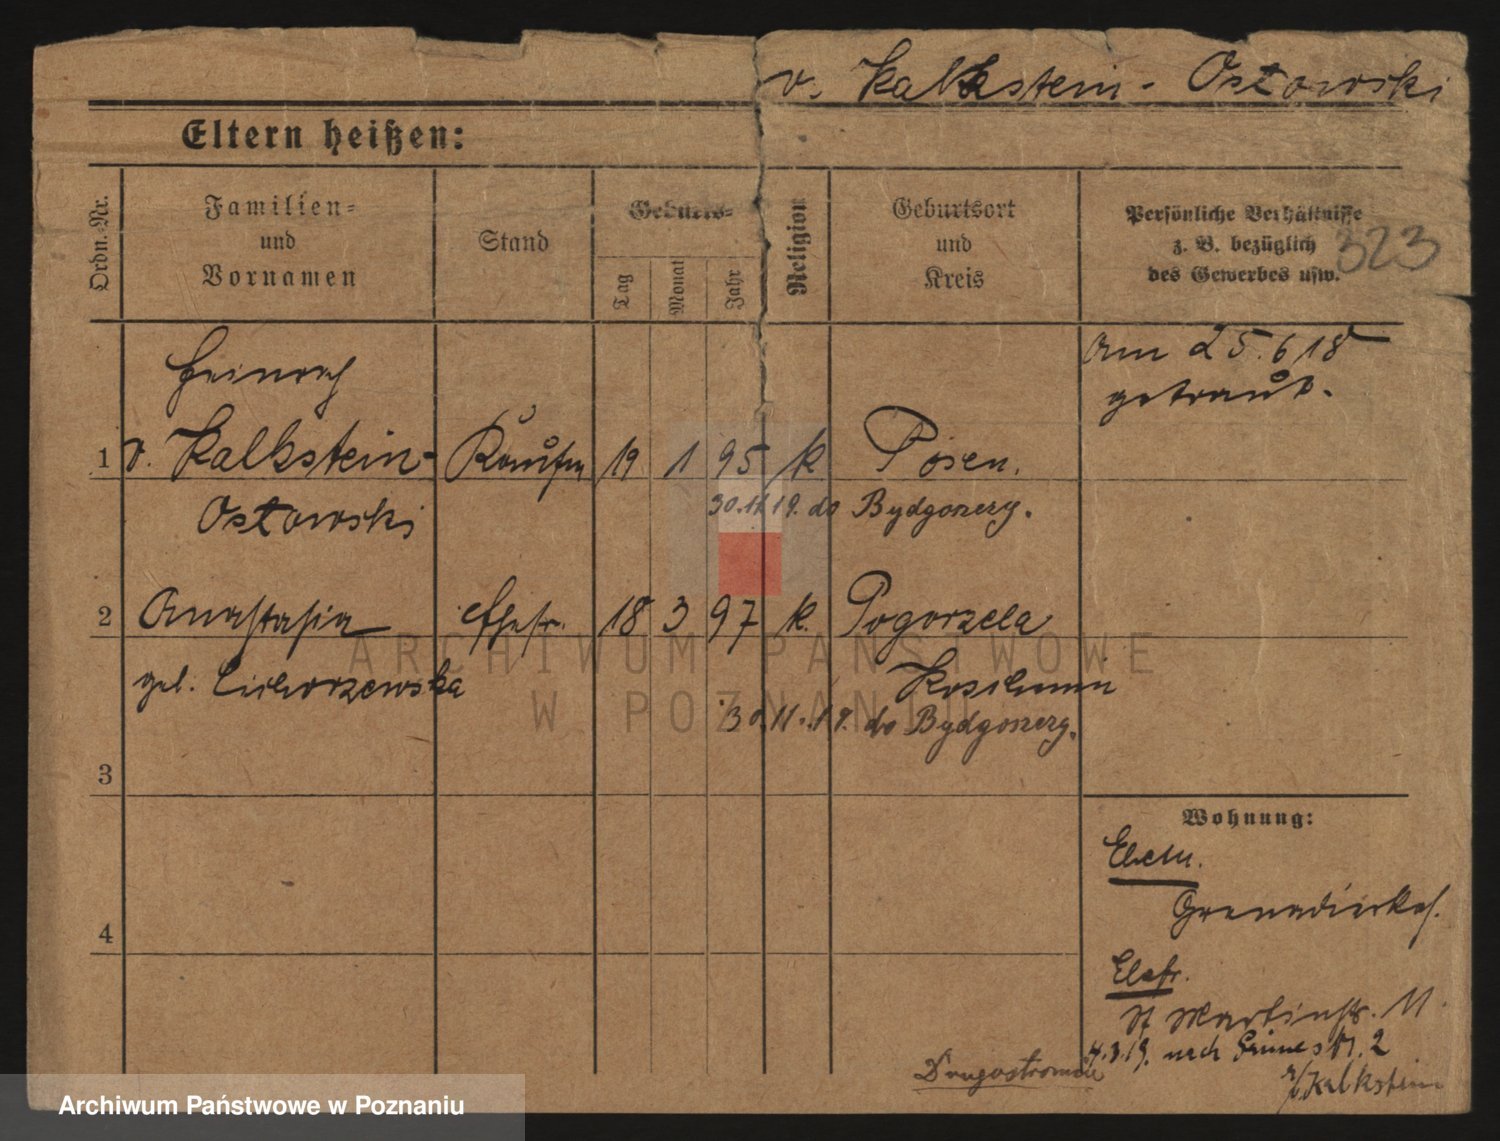 v. Kalkstein - Ostowski
Eltern heißen:
Ordn.-Nr.
Familien-
und
Vornamen
Stand
Geburts-
Tag
Monat
Jahr
Religion
Geburtsort
und
Kreis
Persönliche Verhältnisse
z. B. bezüglich
des Gewerbes usw.
323
Am 25.6 18
getraut.
Heinrich
1 v. Kalkstein- Kaufm 19 1 95 k Posen.
Ostowski 30.11 19. do Bydgoszczy.
2 Anastasia Ehefr. 18 3 97 k. Pogorzela
geb. Koschmin
30.11.19. do Bydgoszczy.
3
Wohnung:
Ehem.
Grenadierkas.
4
Ehefr.
St Martinstr. 11.
4.3.19. nach Grünestr. 2
b/Kalkstein
Drugostronnie
ARCHIWUM PAŃSTWOWE
W POZNANIU
Archiwum Państwowe w Poznaniu